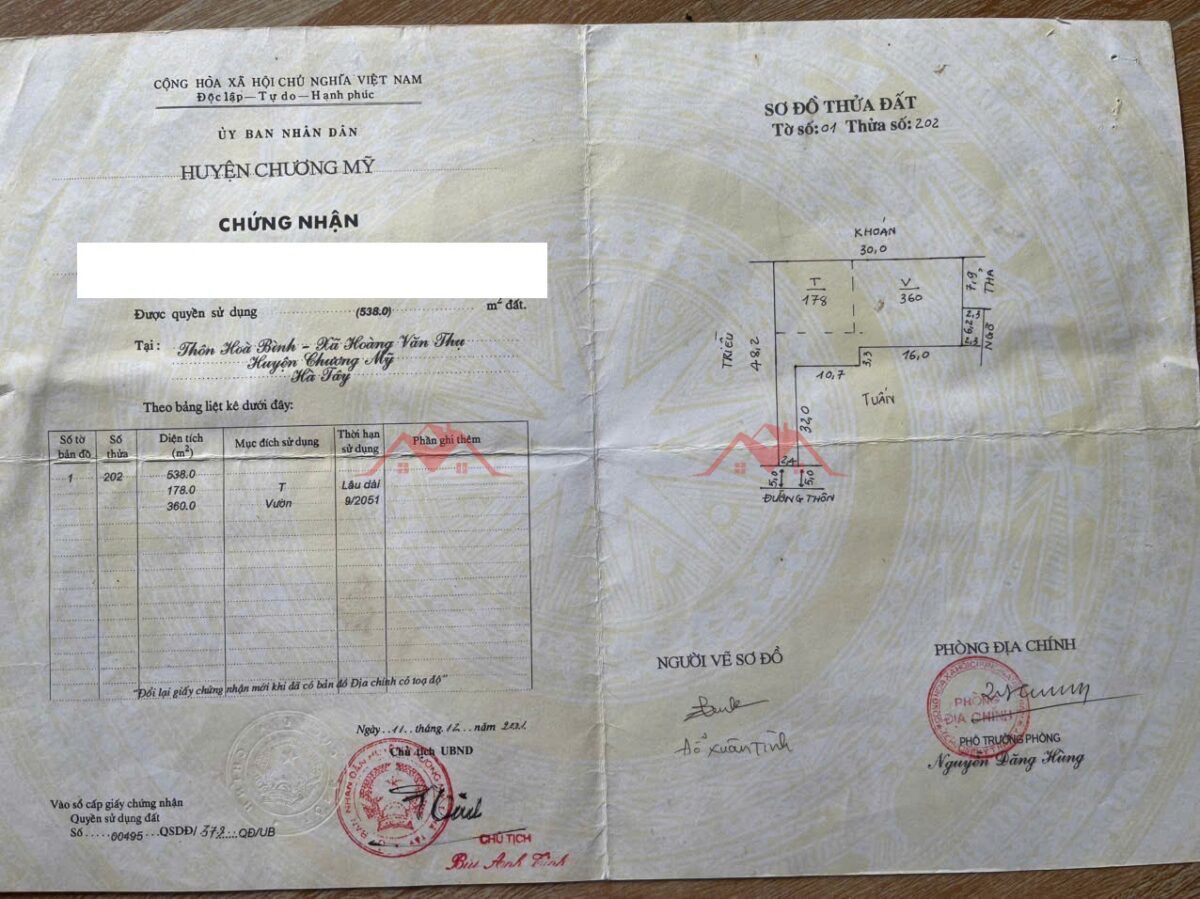 CỘNG HÒA XÃ HỘI CHỦ NGHĨA VIỆT NAM
Độc lập — Tự do — Hạnh phúc
ỦY BAN NHÂN DÂN
HUYỆN CHƯƠNG MỸ
CHỨNG NHẬN
Được quyền sử dụng (538.0) m² đất.
Tại: Thôn Hoà Bình - Xã Hoàng Văn Thụ
Huyện Chương Mỹ
Hà Tây
Theo bảng liệt kê dưới đây:
Số tờ bản đồ Số thửa Diện tích (m²) Mục đích sử dụng Thời hạn sử dụng Phần ghi thêm
1 202 538.0
178.0 T Lâu dài
360.0 Vườn 9/2051
"Đổi lại giấy chứng nhận mới khi đã có bản đồ Địa chính có toạ độ"
Ngày 11 tháng 12 năm 2001
Chủ tịch UBND
CHỦ TỊCH
Bùi Anh
Vào sổ cấp giấy chứng nhận
Quyền sử dụng đất
Số 00495 QSDĐ/ 372 QĐ/UB
SƠ ĐỒ THỬA ĐẤT
Tờ số: 01 Thửa số: 202
KHOÁN
30,0
T
178
V
360
7,9
THA
2,3
6,2
2,3
NGÕ
TRIỀU
48,2
3,3
16,0
10,7
TUẤN
32,0
2,4
5,0
5,0
ĐƯỜNG THÔN
NGƯỜI VẼ SƠ ĐỒ
Đỗ Xuân Tình
PHÒNG ĐỊA CHÍNH
PHÒNG
ĐỊA CHÍNH
PHÓ TRƯỞNG PHÒNG
Nguyễn Đăng Hùng